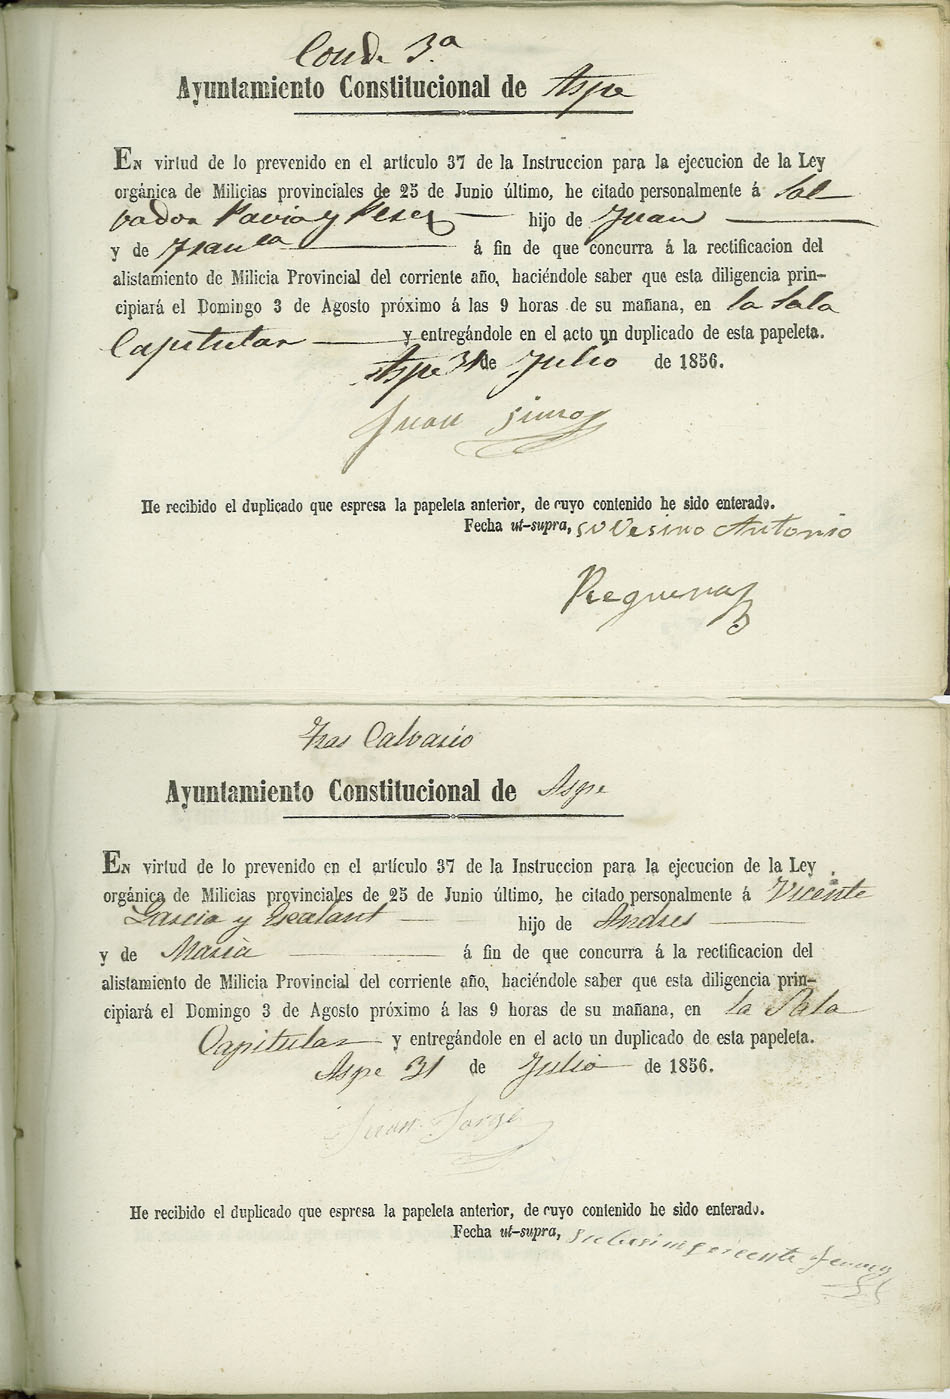 Conde 3.ª
Ayuntamiento Constitucional de Aspe
EN virtud de lo prevenido en el artículo 37 de la Instruccion para la ejecucion de la Ley
orgánica de Milicias provinciales de 25 de Junio último, he citado personalmente á Sal-
vador Pavia y Perez hijo de Juan
y de á fin de que concurra á la rectificacion del
alistamiento de Milicia Provincial del corriente año, haciéndole saber que esta diligencia prin-
cipiará el Domingo 3 de Agosto próximo á las 9 horas de su mañana, en la Sala
Capitular y entregándole en el acto un duplicado de esta papeleta.
Aspe 31 de Julio de 1856.
Juan
He recibido el duplicado que espresa la papeleta anterior, de cuyo contenido he sido enterado.
Fecha ut-supra, su Vesino Antonio
Requena
Tras Calvario
Ayuntamiento Constitucional de Aspe
EN virtud de lo prevenido en el artículo 37 de la Instruccion para la ejecucion de la Ley
orgánica de Milicias provinciales de 25 de Junio último, he citado personalmente á Vicente
Garcia y hijo de Andres
y de Maria á fin de que concurra á la rectificacion del
alistamiento de Milicia Provincial del corriente año, haciéndole saber que esta diligencia prin-
cipiará el Domingo 3 de Agosto próximo á las 9 horas de su mañana, en la Sala
Capitular y entregándole en el acto un duplicado de esta papeleta.
Aspe 31 de Julio de 1856.
Juan Jorge
He recibido el duplicado que espresa la papeleta anterior, de cuyo contenido he sido enterado.
Fecha ut-supra,